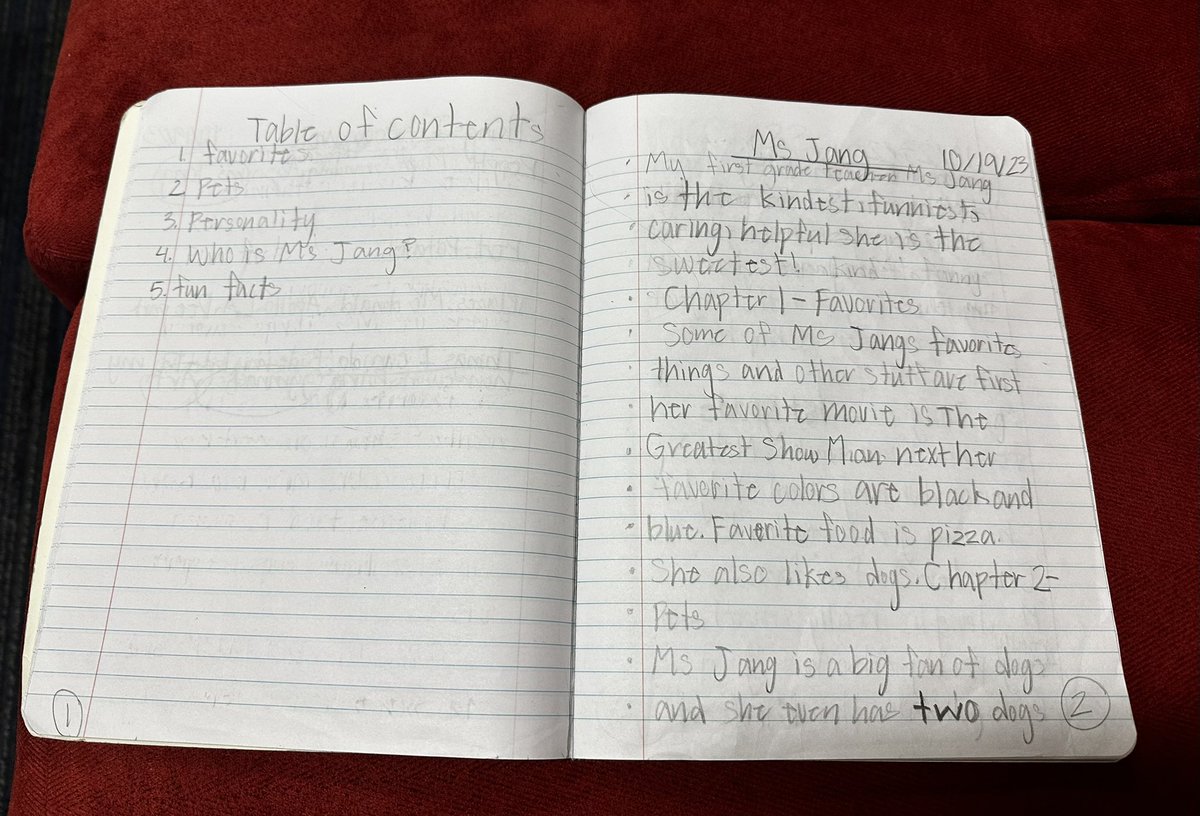 Table of contents
1. favorites
2. Pets
3. Personality
4. Who is Ms Jang?
5. fun facts
1
Ms Jang 10/19/23
• My first grade teacher Ms Jang
• is the kindest, funniest,
• caring, helpful she is the
sweetest!
• Chapter 1 - Favorites
• Some of Ms Jangs favorite
• things and other stuff are first
• her favorite movie is The
• Greatest Show Man. next her
• favorite colors are black and
• blue. Favorite food is pizza.
• She also likes dogs. Chapter 2-
• Pets
• Ms Jang is a big fan of dogs
• and she even has two dogs
2